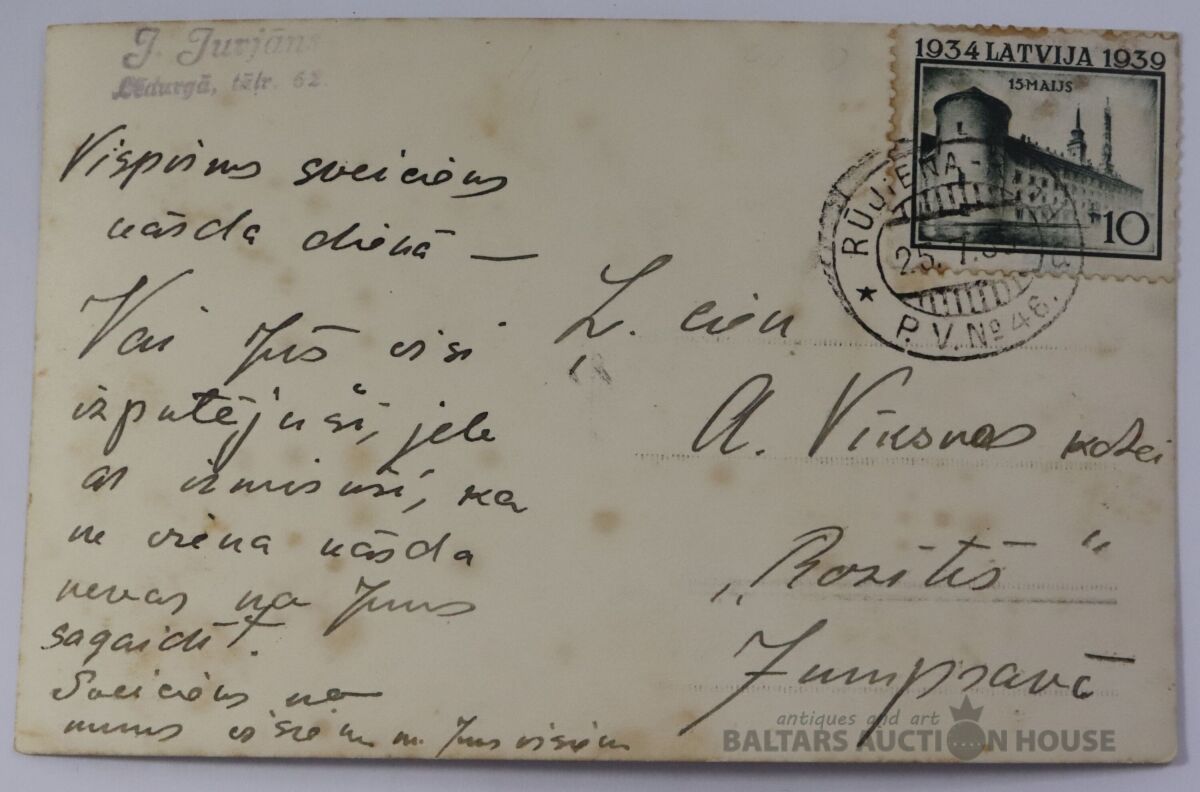 J. Jurjāns
Lēdurgā, tēlr. 62.
1934 LATVIJA 1939
15·MAIJS
10
RŪJIENA
25. 7.
P. V. Nº 46.
Vispirms sveiciens
vāsda dienā —
Vai Jūs visi
izputējuši, jele
ar izmisuši, ka
ne viena vāsda
nevar no Jums
sagaidīt.
Sveiciens no
mums visiem un Jums visiem
Ļ. cien
A. Vīksnas kdzei
"Rozītēs"
Jumpravā
antiques and art
BALTARS AUCTION HOUSE